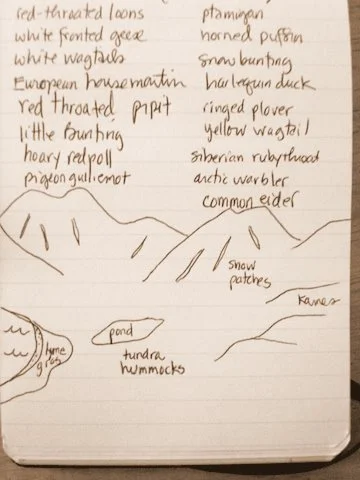 red-throated loons
white fronted geese
white wagtails
European housemartin
red throated pipit
little Bunting
hoary redpoll
pigeon guillemot
ptarmigan
horned puffin
snow bunting
harlequin duck
ringed plover
yellow wagtail
siberian rubythroat
arctic warbler
common eider
snow
patches
Kames
pond
tundra
hummocks
grass